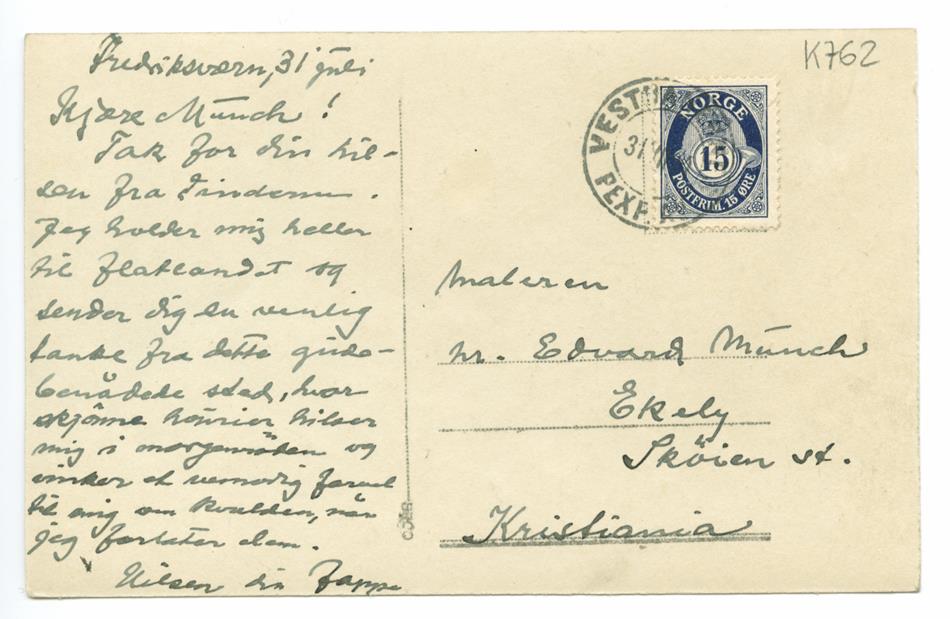 Fredriksværn, 31 juli
Kjære Münch!
Tak for din hil-
sen fra Tinderne.
Jeg holder mig heller
til flatlandet og
sender dig en venlig
tanke fra dette gude-
benådede sted, hvor
skjönne hourier hilser
mig i morgenröden og
vinker et vemodig farvel
til mig om kvælden, når
jeg forlater dem.
Hilsen din Jappe
K762
NORGE
15
POSTFRIM. 15 ØRE
PEXP.
Maleren
hr. Edvard Münch
Ekely
Sköien st.
Kristiania